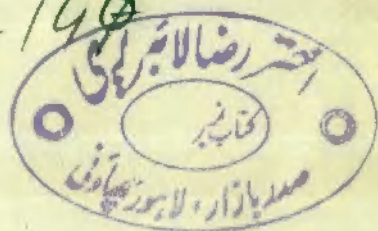 190
اختر رضا لائبریری
کتاب نمبر
صدر بازار، لاہور چھاؤنی